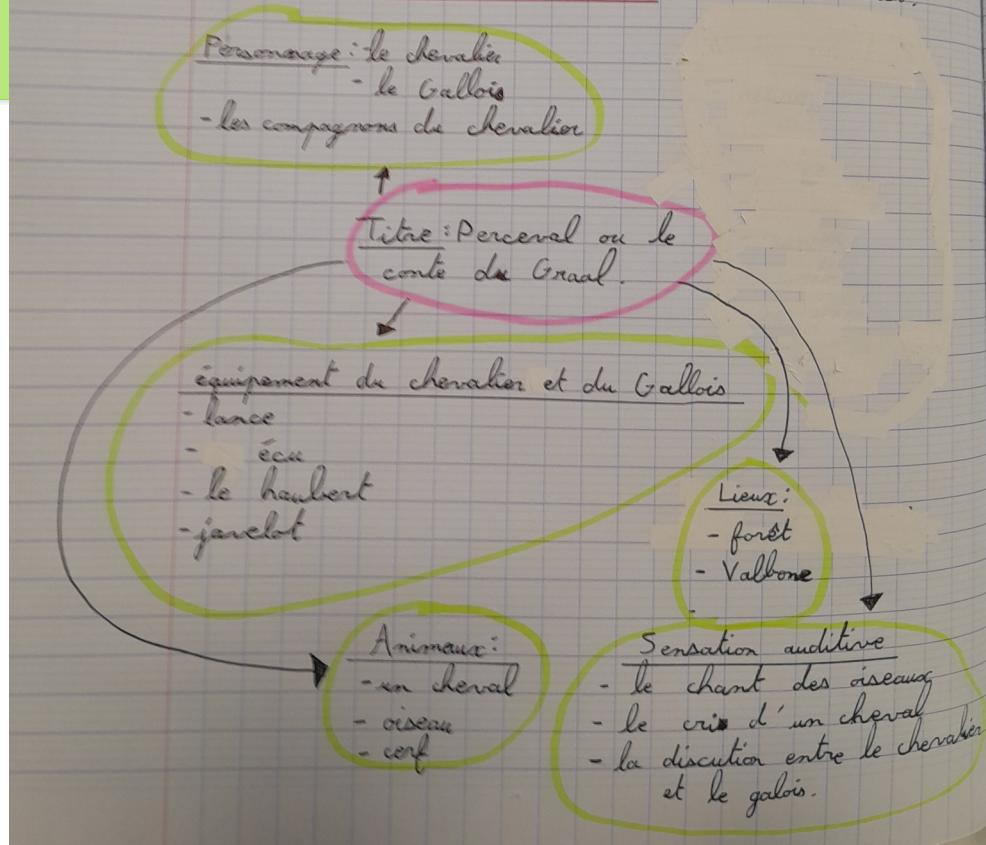 Personnage : - le chevalier
- le Gallois
- les compagnons du chevalier
Titre : Perceval ou le
conte du Graal.
équipement du chevalier et du Gallois
- lance
- écu
- le haubert
- javelot
Lieux :
- forêt
- Valbone
-
Animaux :
- un cheval
- oiseau
- cerf
Sensation auditive
- le chant des oiseaux
- le cris d'un cheval
- la discution entre le chevalier
et le galois.